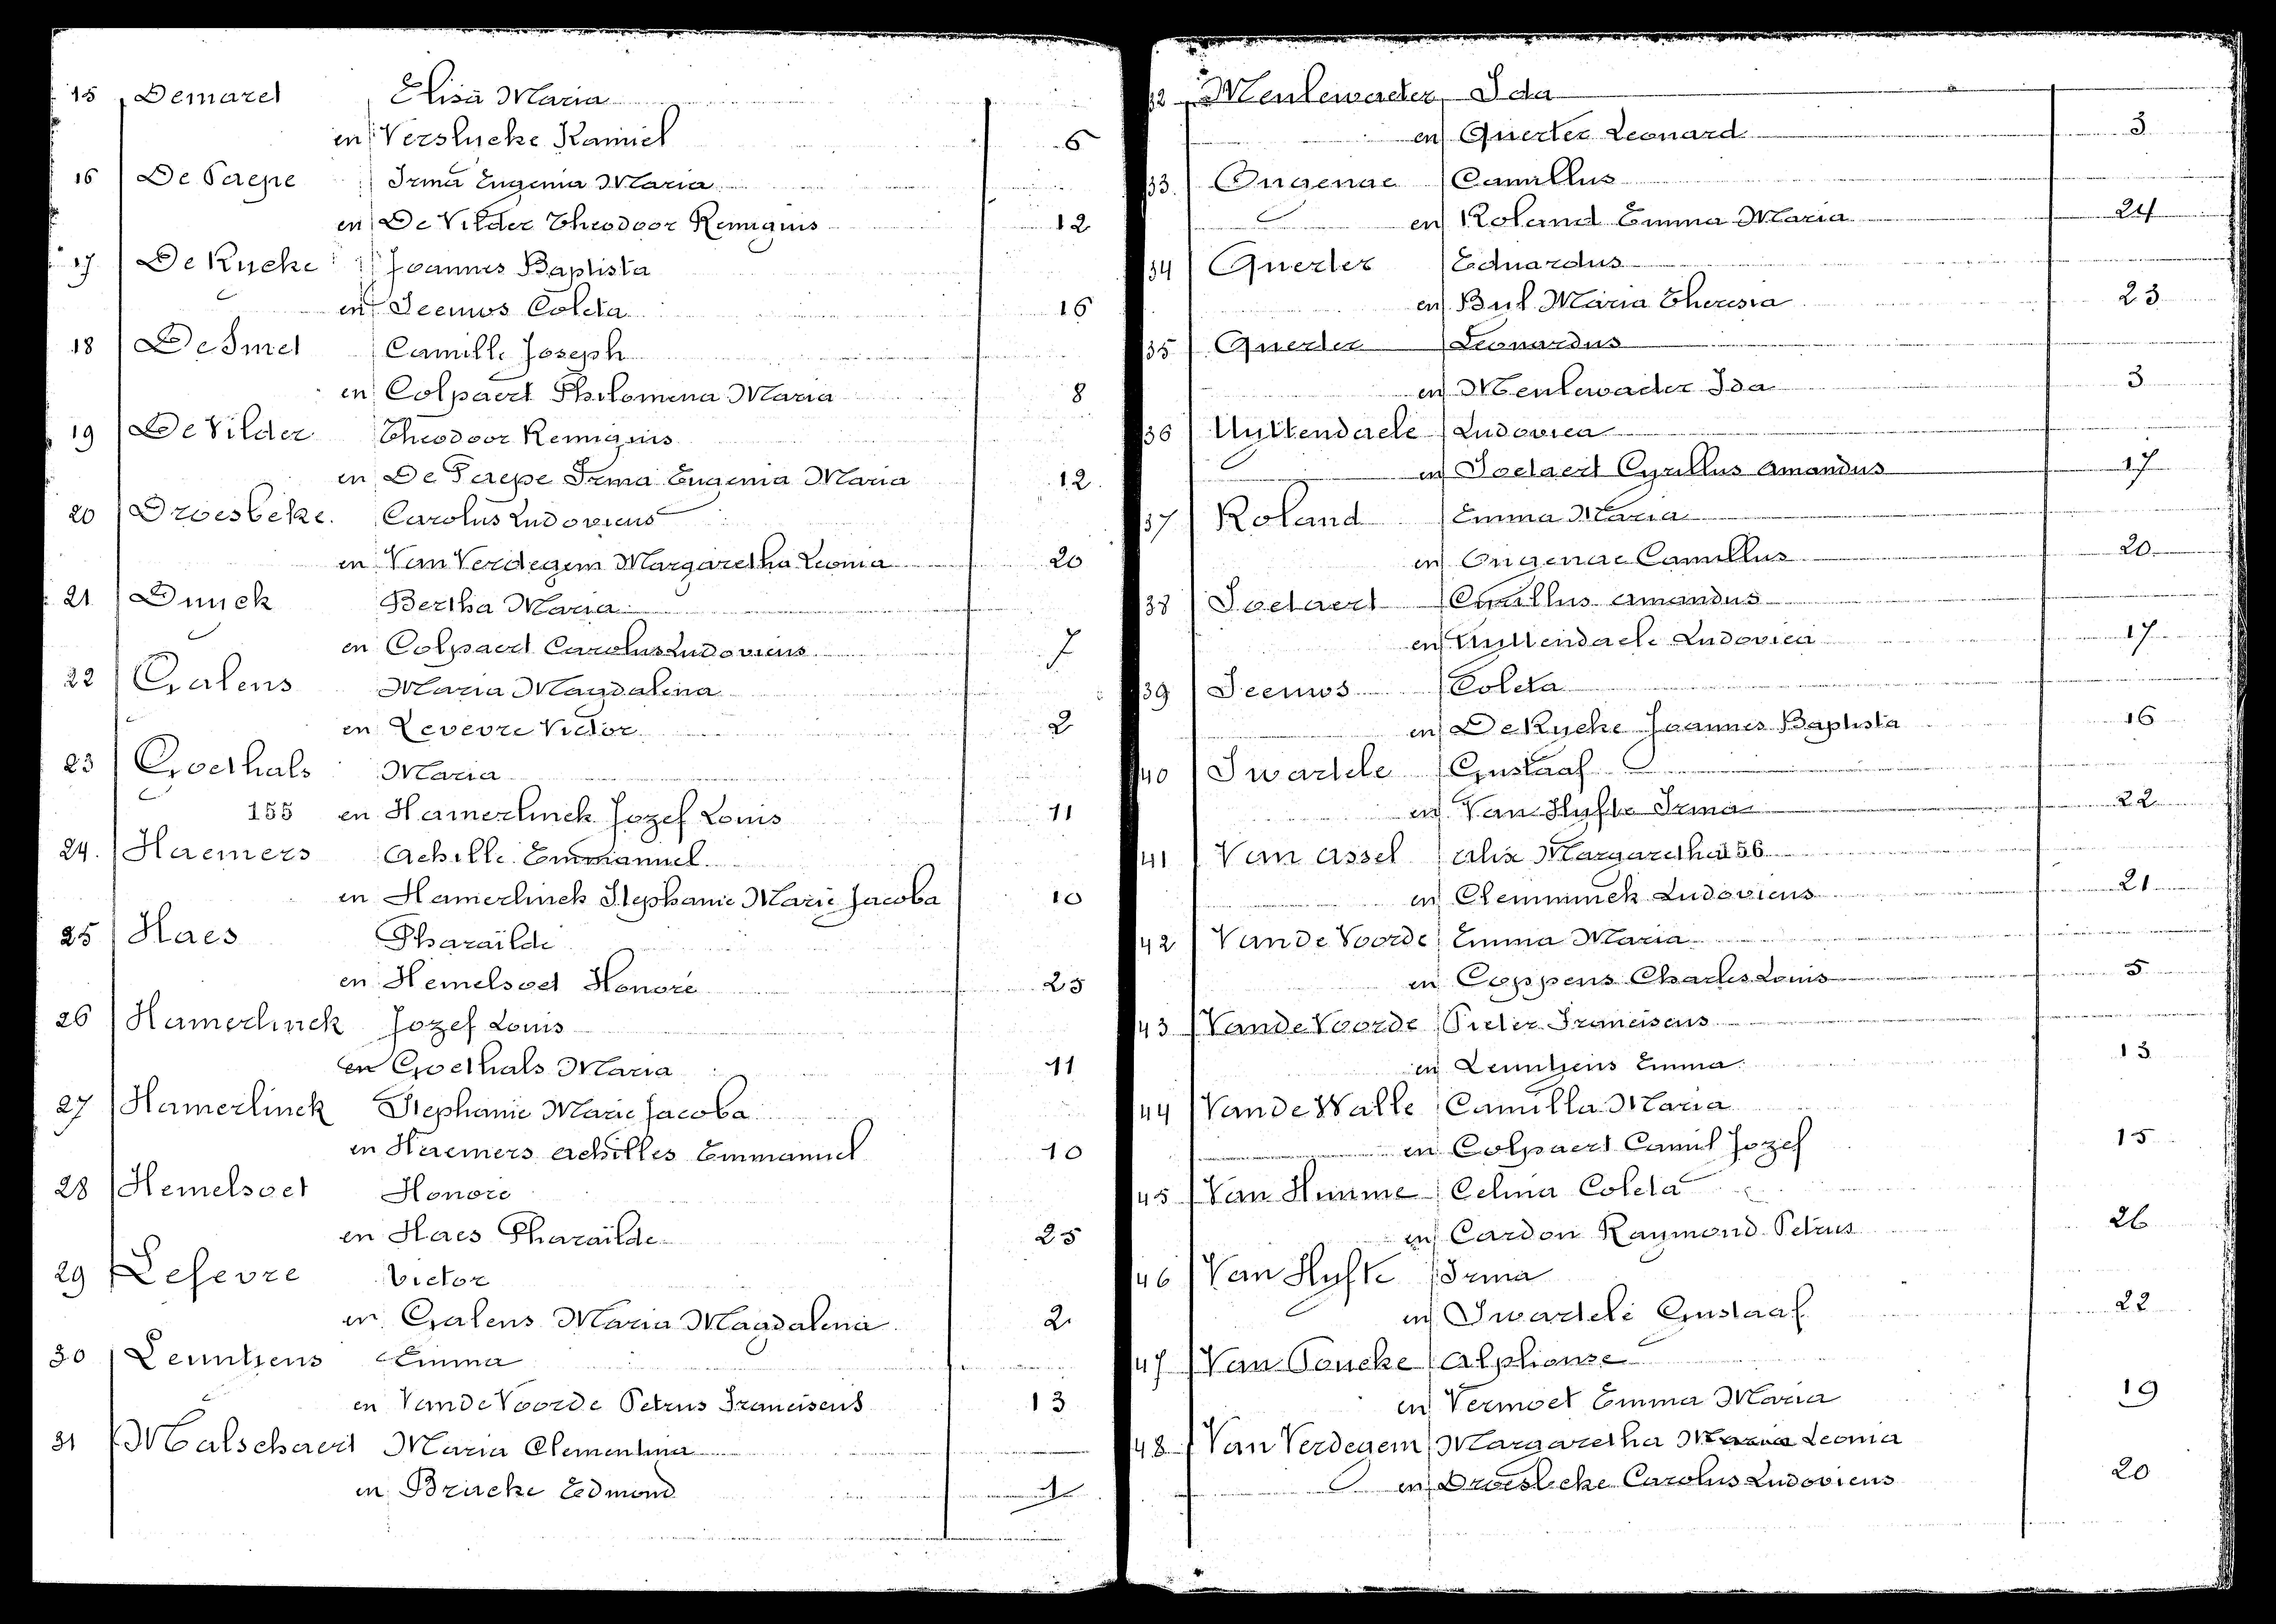 15 Demaret Elisa Maria
en Verslucke Kamiel 6
16 De Paepe Irma Eugenia Maria
en De Vilder Theodoor Remigius 12
17 De Rycke Joannes Baptista
en Seeuws Coleta 16
18 De Smet Camille Joseph
en Colpaert Philomena Maria 8
19 De Vilder Theodoor Remigius
en De Paepe Irma Eugenia Maria 12
20 Droesbeke. Carolus Ludovicus
en Van Verdegem Margaretha Leonia 20
21 Duyck Bertha Maria
en Colpaert Carolus Ludovicus 7
22 Galens Maria Magdalena
en Levevre Victor 2
23 Goethals Maria
155 en Hamerlinck Jozef Louis 11
24. Haemers Achille Emmanuel
en Hamerlinck Stephanie Marie Jacoba 10
25 Haes Pharaïlde
en Hemelsoet Honoré 25
26 Hamerlinck Jozef Louis
en Goethals Maria 11
27 Hamerlinck Stephanie Marie Jacoba
en Haemers Achilles Emmanuel 10
28 Hemelsoet Honoré
en Haes Pharaïlde 25
29 Lefevre Victor
en Galens Maria Magdalena 2
30 Leuntjens Emma
en Van de Voorde Petrus Franciscus 13
31 Malschaert Maria Clementina
en Brucke Edmond 1
32 Meulewaeter Ida
en Querter Leonard 3
33 Ongenae Camillus
en Roland Emma Maria 24
34 Querter Eduardus
en Buf Maria Theresia 23
35 Querter Leonardus
en Meulewaeter Ida 3
36 Uyttendaele Ludovica
en Soetaert Cyrillus Amandus 17
37 Roland Emma Maria
en Ongenae Camillus 20
38 Soetaert Cyrillus Amandus
en Uyttendaele Ludovica 17
39 Seeuws Coleta
en De Rycke Joannes Baptista 16
40 Swartele Gustaaf
en Van Hyfte Irma 22
41 Van Assel Alix Margaretha 156
en Clemminck Ludovicus 21
42 Van de Voorde Emma Maria
en Coppens Charles Louis 5
43 Van de Voorde Pieter Franciscus
en Leuntjens Emma 13
44 Van de Walle Camilla Maria
en Colpaert Camil Jozef 15
45 Van Humme Celina Coleta
en Cardon Raymond Petrus 26
46 Van Hyfte Irma
en Swartele Gustaaf 22
47 Van Poucke Alphonse
en Vermoet Emma Maria 19
48 Van Verdegem Margaretha Maria Leonia
en Droesbeke Carolus Ludovicus 20